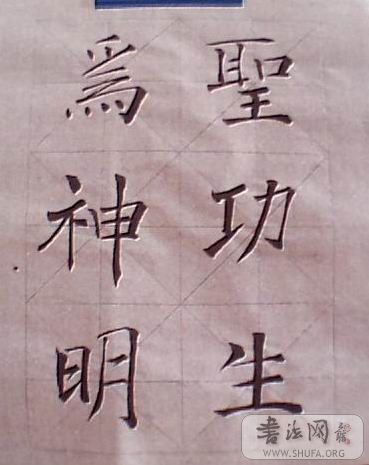 聖功生
爲神明
書法网
WWW.SHUFA.ORG